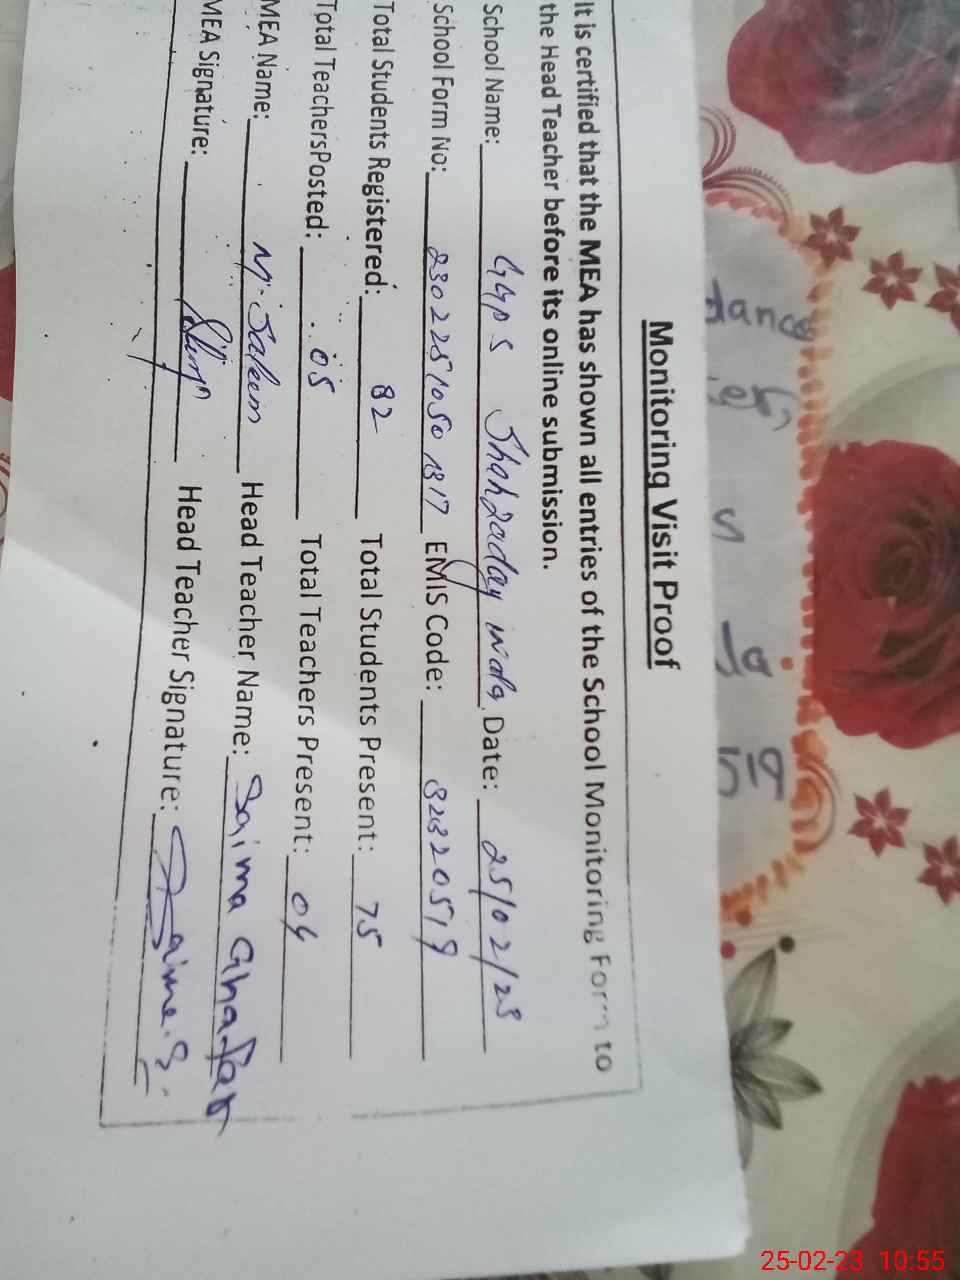 Monitoring Visit Proof
It is certified that the MEA has shown all entries of the School Monitoring Form to
the Head Teacher before its online submission.
School Name: GGPS Shahzaday wala Date: 25/02/23
School Form No: 23022510501317 EMIS Code: 32320519
Total Students Registered: 82 Total Students Present: 75
Total TeachersPosted: 05 Total Teachers Present: 04
MEA Name: M. Saleem Head Teacher Name: Saima Ghafar
MEA Signature: Head Teacher Signature:
25-02-23 10:55